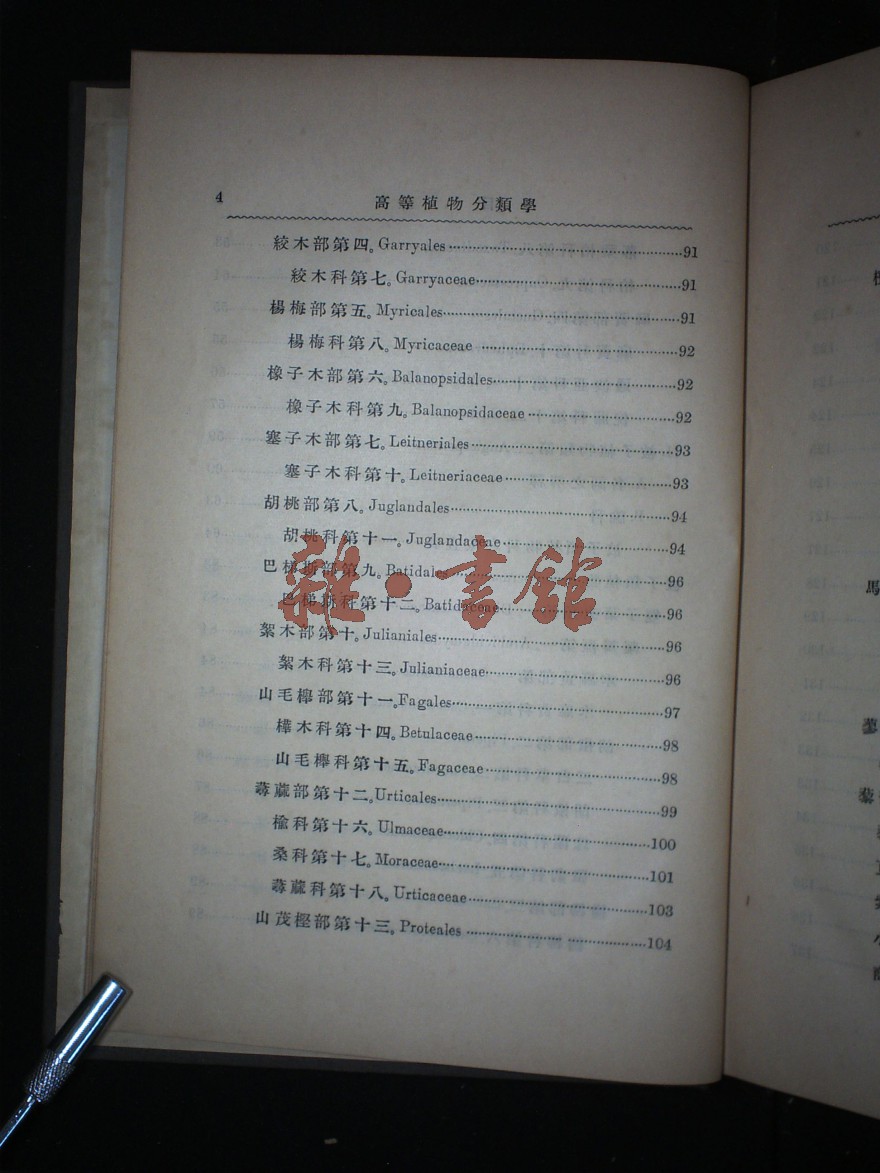 4
高等植物分類學
絞木部第四。Garryales 91
絞木科第七。Garryaceae 91
楊梅部第五。Myricales 91
楊梅科第八。Myricaceae 92
橡子木部第六。Balanopsidales 92
橡子木科第九。Balanopsidaceae 92
塞子木部第七。Leitneriales 93
塞子木科第十。Leitneriaceae 93
胡桃部第八。Juglandales 94
胡桃科第十一。Juglandaceae 94
巴梯斯部第九。Batidales 96
科第十二。Batidaceae 96
絮木部第十。Julianiales 96
絮木科第十三。Julianiaceae 96
山毛櫸部第十一。Fagales 97
樺木科第十四。Betulaceae 98
山毛櫸科第十五。Fagaceae 98
蕁蔴部第十二。Urticales 99
榆科第十六。Ulmaceae 100
桑科第十七。Moraceae 101
蕁蔴科第十八。Urticaceae 103
山茂樫部第十三。Proteales 104
雜·書館